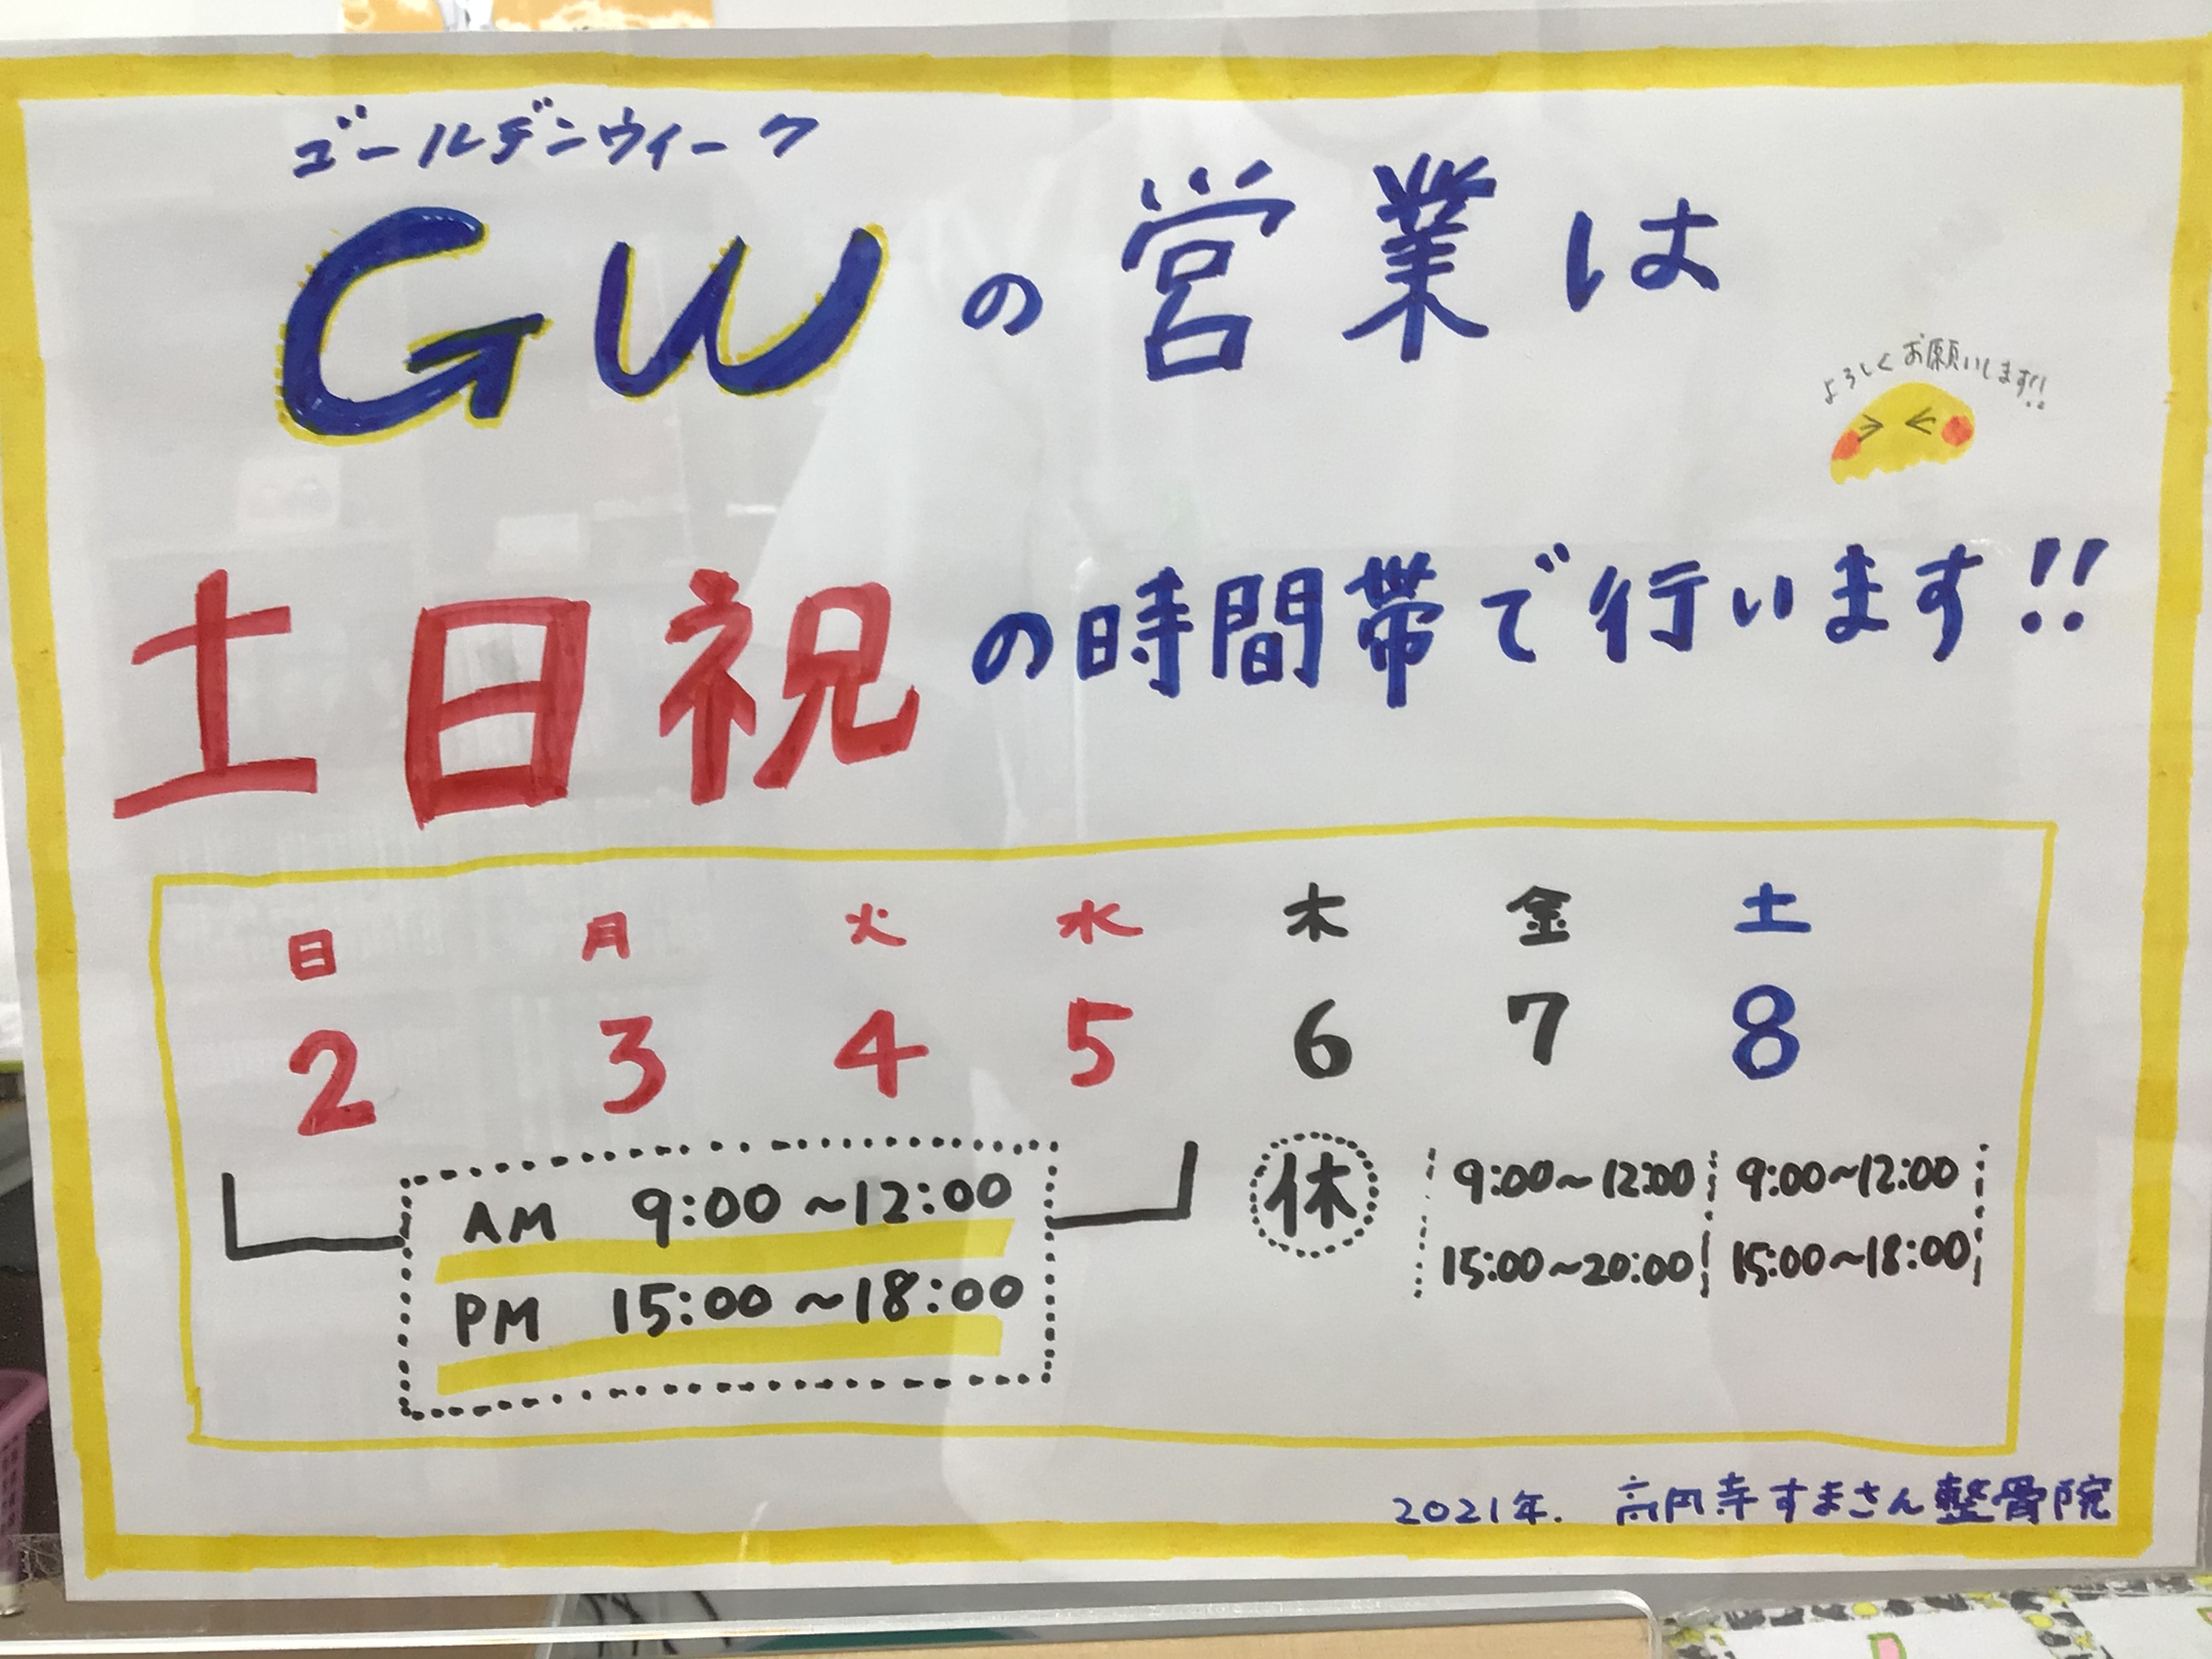 ゴールデンウィーク
GWの営業は
よろしくお願いします!!
土日祝の時間帯で行います!!
日 月 火 水 木 金 土
2 3 4 5 6 7 8
AM 9:00~12:00
PM 15:00~18:00
休
9:00~12:00 9:00~12:00
15:00~20:00 15:00~18:00
2021年. 高円寺すまさん整骨院